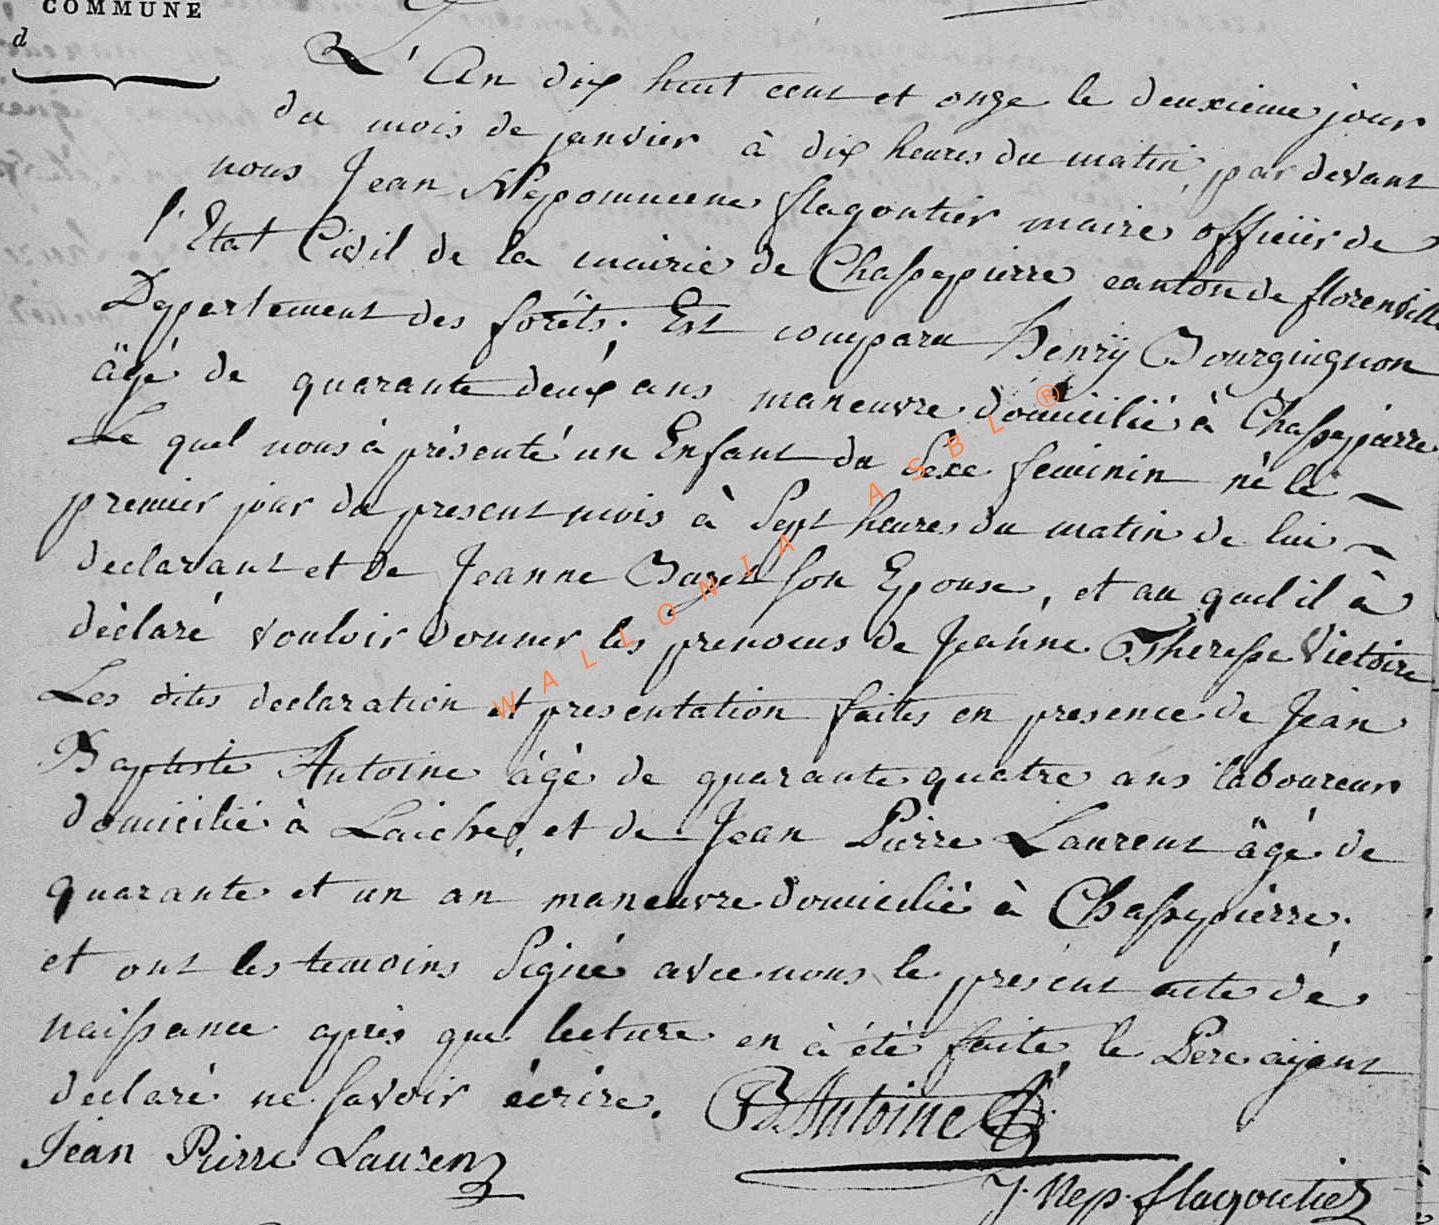 COMMUNE
d
L'An dix huit cent et onze le deuxieme jour
du mois de janvier à dix heures du matin, par devant
nous Jean Nepomucene flagontier maire officier de
l'Etat Civil de la mairie de Chassepierre canton de florenville
Departement des forêts. Est comparu henrÿ Bourguignon
âgé de quarante deux ans maneuvre domicilié à Chassepierre
Le quel nous à présenté un Enfant du Sexe feminin né le
premier jour du present mois à Sept heures du matin de lui
declarant et de Jeanne son Epouse, et au quel il à
déclaré vouloir donner les prenoms de Jeanne Theresse Victoire
Les dites declaration et presentation faites en presence de Jean
Baptiste Antoine âgé de quarante quatre ans laboureur
domicilié à Laiche, et de Jean Pierre Laurent âgé de
quarante et un an maneuvre domicilié à Chassepierre.
et ont les temoins Signé avec nous le présent acte de
naissance après que lecture en à été faite, le Pere aÿant
declaré ne savoir écrire. JB Antoine
Jean Pierre Laurent
J. Nep. flagontier
WALLONIA ASBL ®